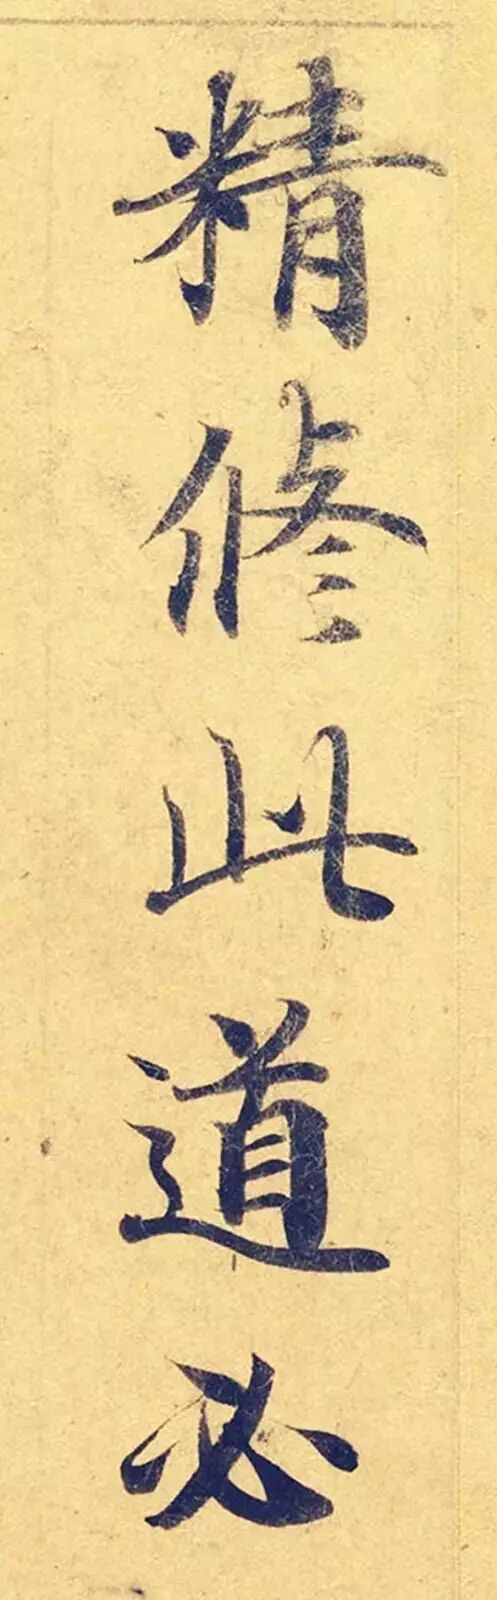 精修此道必